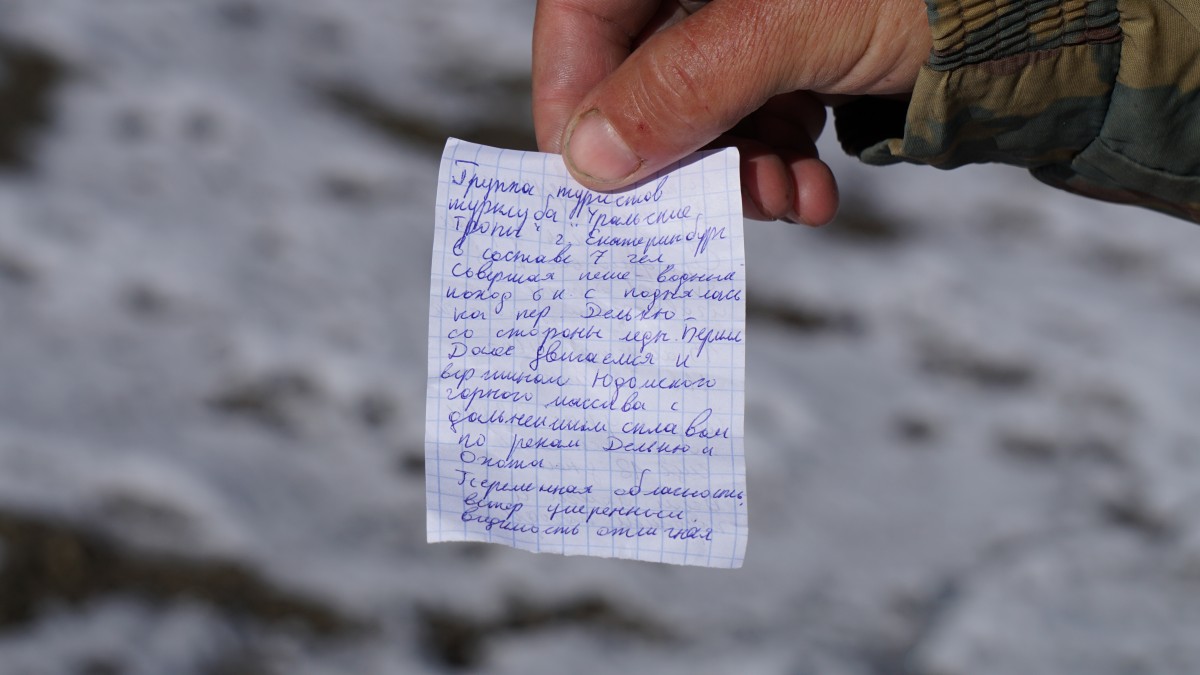 Группа туристов
турклуба "Уральские
Тропы" г. Екатеринбург
В составе 7 чел
Совершая пеше-водный
поход 6 к. с поднялась
на пер Делькю-
со стороны ледн. Берилл
Далее двигаемся к
вершинам Юдомского
горного массива с
дальнейшим сплавом
по рекам Делькю и
Охота
Переменная облачность,
ветер умеренный,
видимость отличная